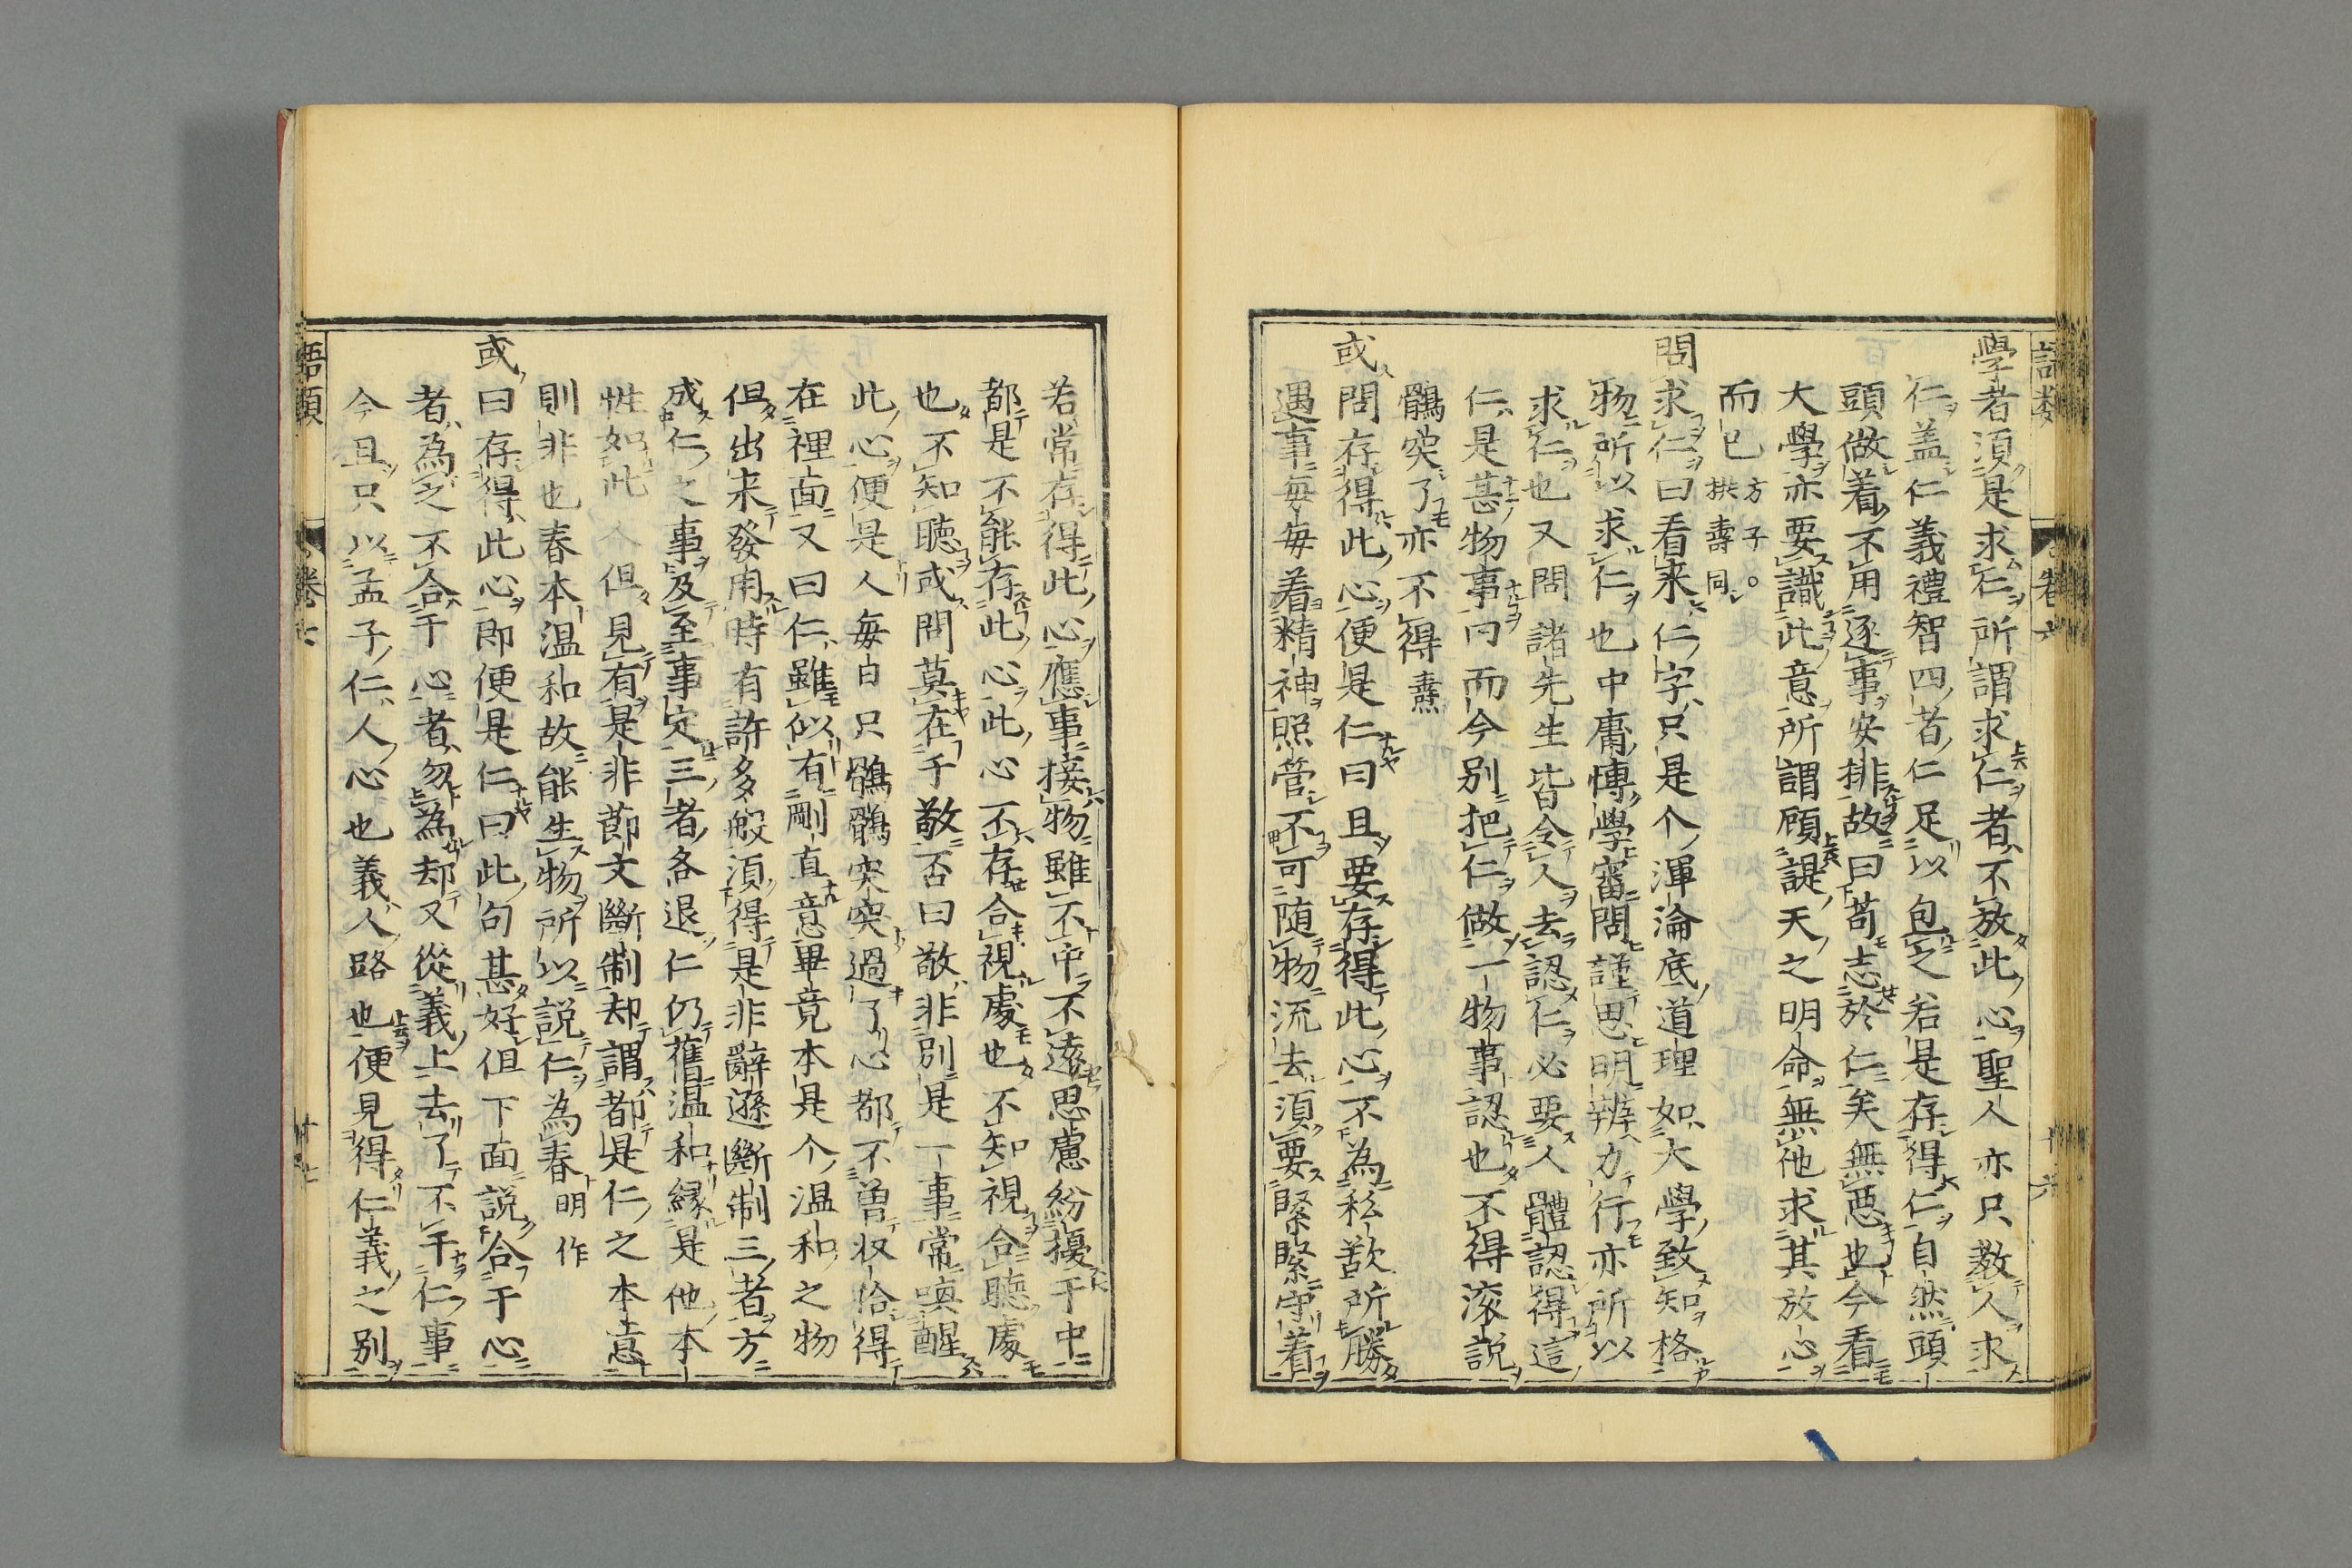 學者須是求仁所謂求仁者不放此心聖人亦只教人求
仁盖仁義禮智四者仁足以包之若是存得仁自然頭
頭做着不用逐事安排故曰苟志於仁矣無惡也今看
大學亦要識此意所謂顧諟天之明命無他求其放心
而已方子。拱壽同
問求仁曰看来仁字只是个渾淪底道理如大學致知格
物所以求仁也中庸博學審問謹思明辨力行亦所以
求仁也又問諸先生皆令人去認仁必要人體認得這
仁是甚物事曰而今别把仁做一物事認也不得滚説
鶻突了亦不得燾
或問存得此心便是仁曰且要存得此心不為私欲所勝
遇事每每着精神照管不可随物流去須要緊緊守着
若常存得此心應事接物雖不中不遠思慮紛擾于中
都是不能存此心此心不存合視處也不知視合聽處
也不知聽或問莫在于敬否曰敬非别是一事常喚醒
此心便是人每日只鶻鶻突突過了心都不曾収拾得
在裡面又曰仁雖似有剛直意畢竟本是个温和之物
但出来發用時有許多般須得是非辭遜斷制三者方
成仁之事及至事定三者各退仁仍舊温和縁是他本
性如此人但見有是非節文斷制却謂都是仁之本意
則非也春本温和故能生物所以説仁為春明作
或曰存得此心即便是仁曰此句甚好但下面説合于心
者為之不合于心者勿為却又從義上去了不干仁事
今且只以孟子仁人心也義人路也便見得仁義之别
語類
卷六
語類
十七